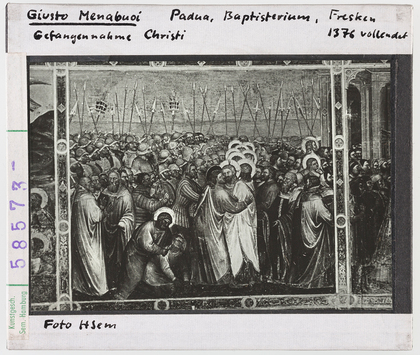 Giusto Menabuoi Padua, Baptisterium, Fresken
Gefangennahme Christi 1376 vollendet
58573-
Kunstgesch.
Sem. Hamburg
Foto HSem